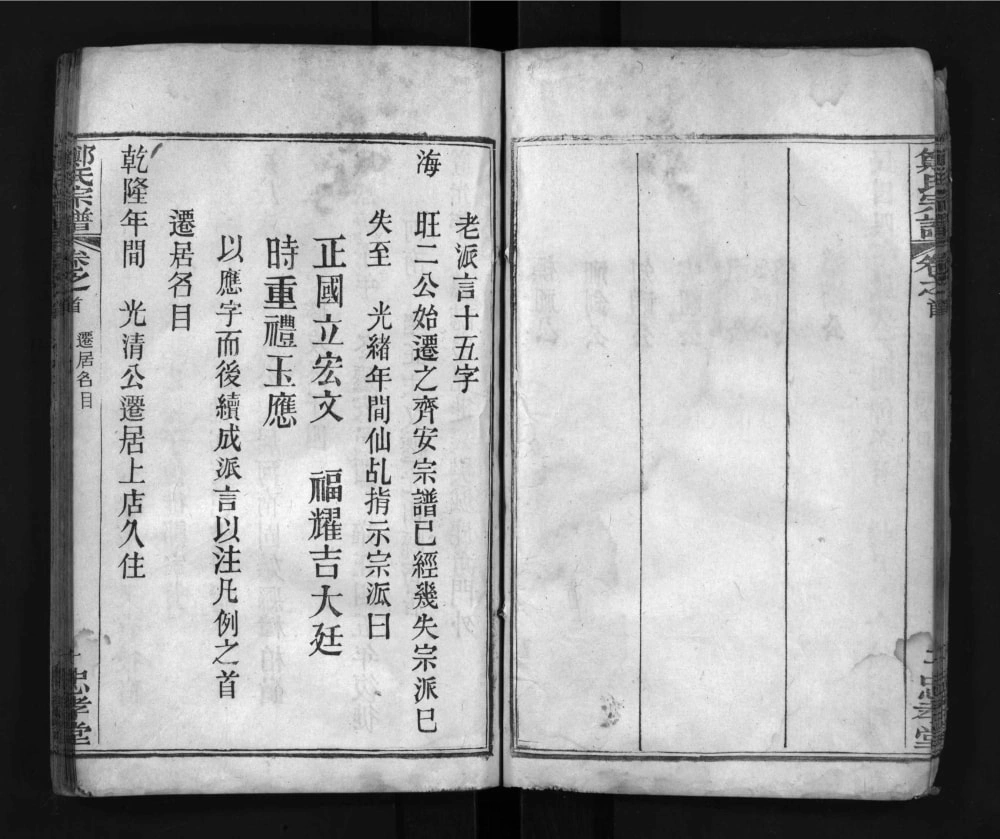 鄭氏宗譜 卷之首
忠孝堂
老派言十五字
海 旺二公始遷之齊安宗譜已經幾失宗派已
失至 光緒年間仙乩指示宗派曰
正國立宏文 福耀吉大廷
時重禮玉應
以應字而後續成派言以注凡例之首
遷居各目
乾隆年間 光清公遷居上店久住
鄭氏宗譜 卷之首 遷居各目
忠孝堂